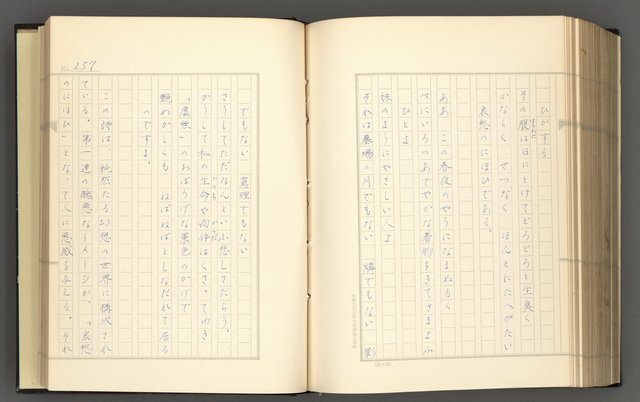 ひかする
その腹は日にとけてどろどろと生臭く
かなしく せつなく ほんとにたへがたい
哀愁のにほひである。
ああ この春夜のやうになまぬるく
べにいろのあでやかな着物をきてさまよふ
ひとよ
妹のやうにやさしい人よ
それは墓場の月でもない 燐でもない 影
No. 259
でもない 真理でもない
さうしてただなんといふ悲しさだらう。
かうして私の生命や肉体はくさつてゆき
「虚無」のおぼろげな景色のかげで
艶めかしくも ねばねばとしなだれて居る
のですよ。
この詩は、純然たる幻想の世界に構成され
ている。第一連の醜悪なイメージが、「哀愁
のにほひ」となって人に悪感を与える。それ